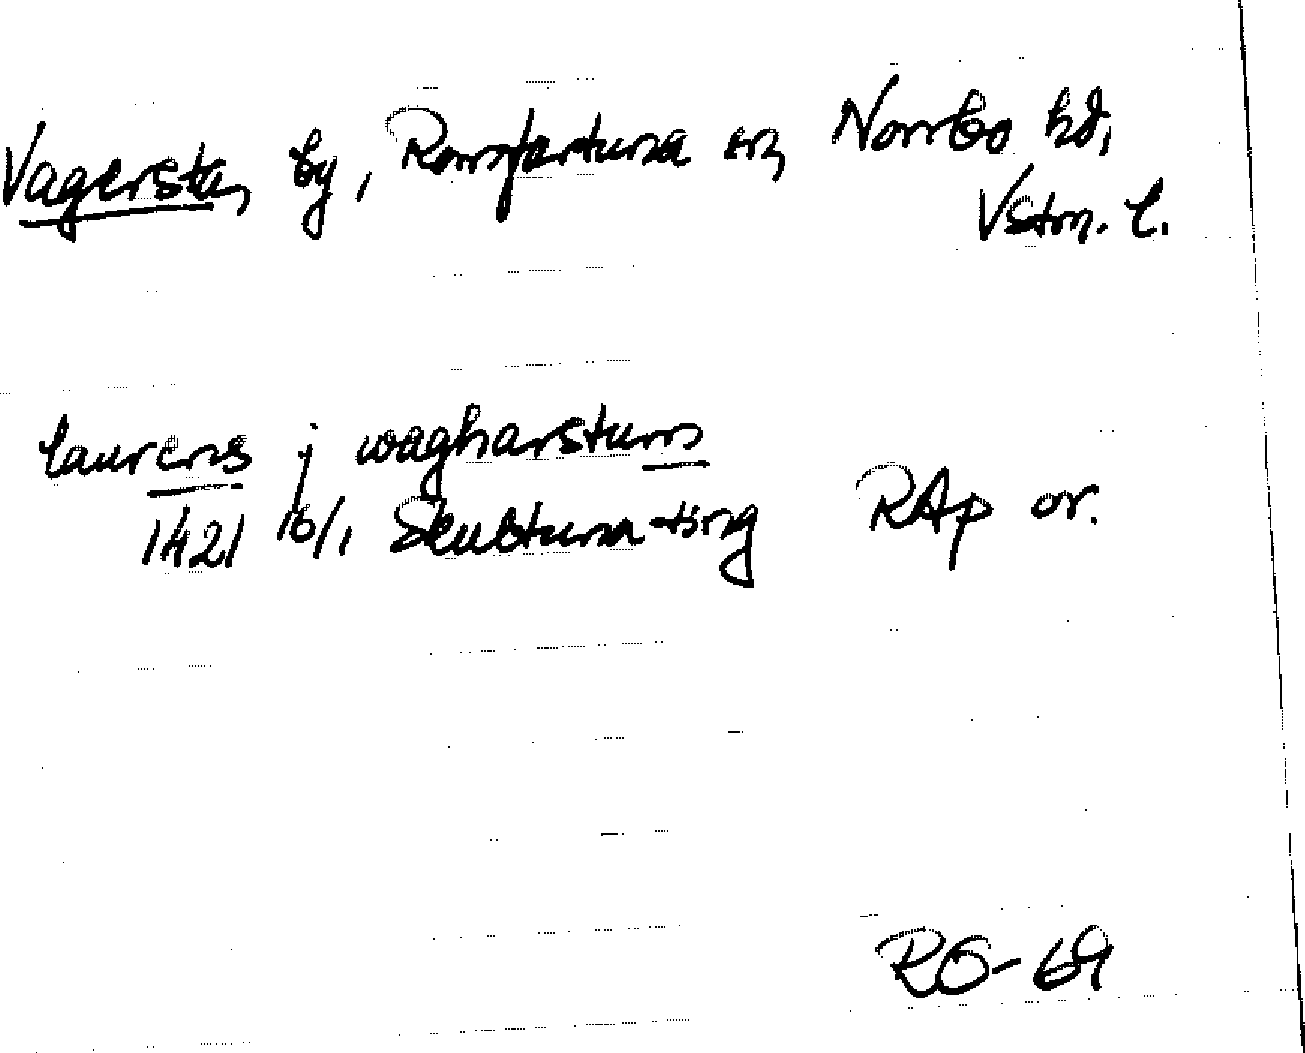 Vagersta, by, Romfartuna sn, Norrbo hd,
Vstm. l.
laurens j wagharstum
1421 16/1 Skultuna -ting RAp or.
RO-69